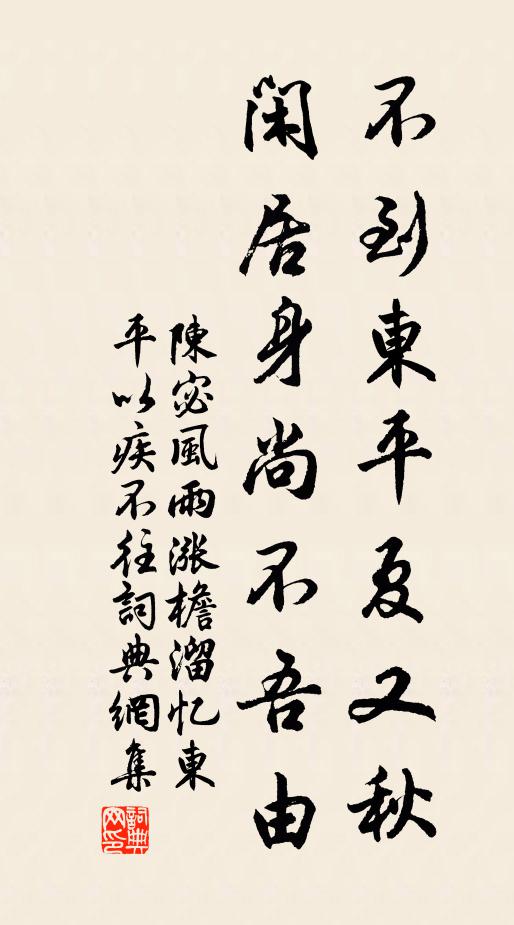 不到東平夏又秋
閑居身尚不吾由
陳宓風雨漲檐溜忆東
平以疾不往詞典網集
詞典
网印